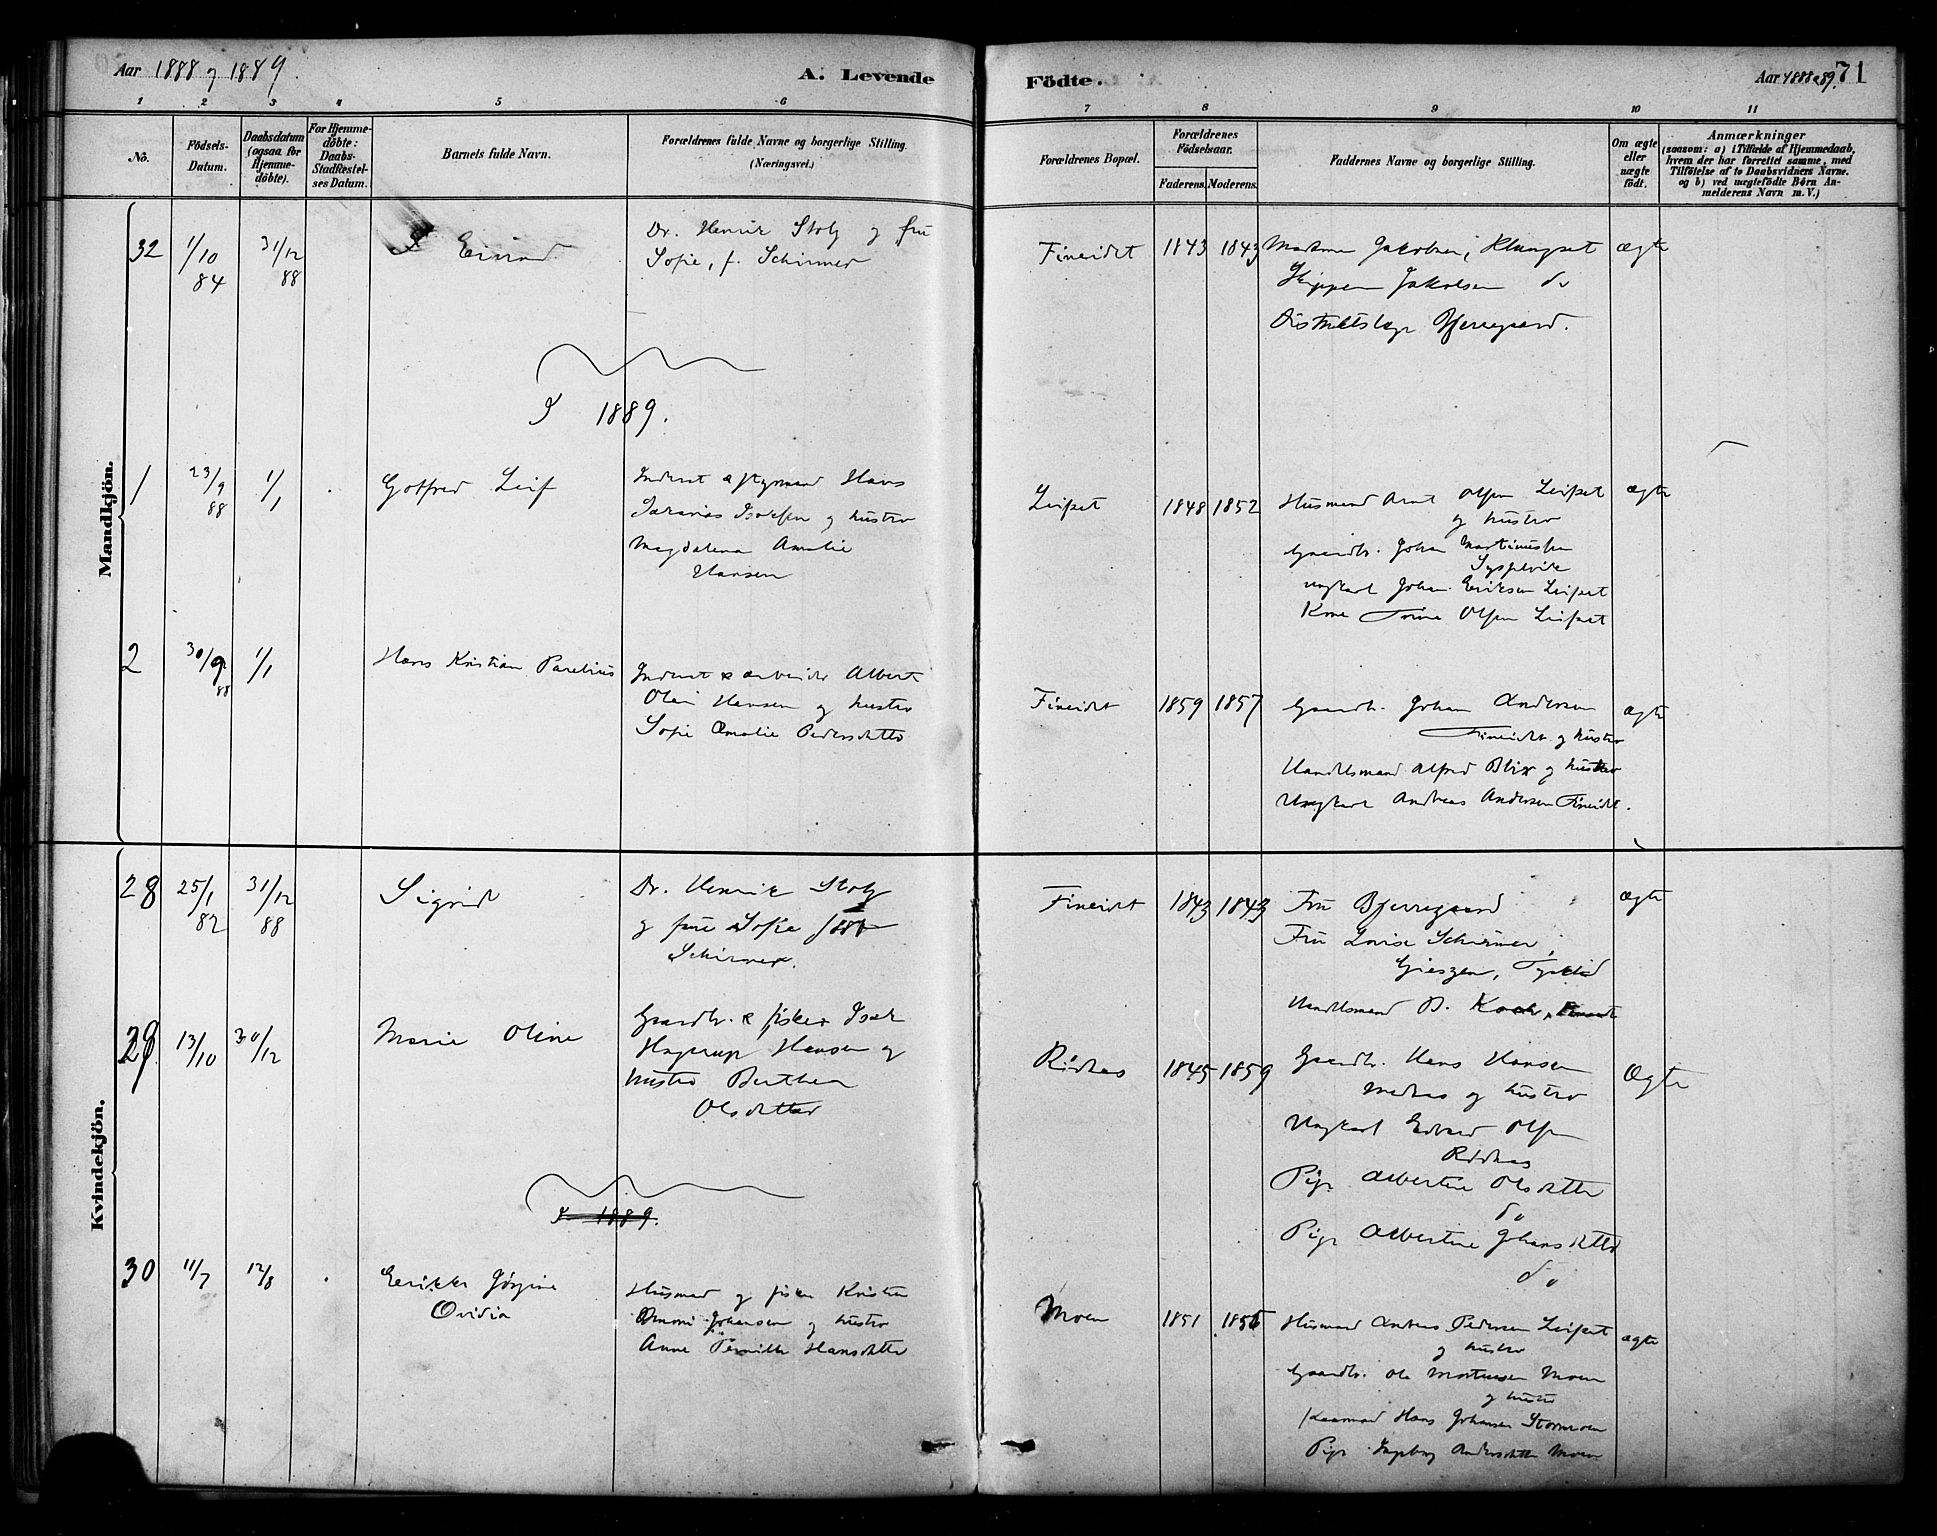 Aar 1888 og 1889.
A. Levende
Födte.
Aar 1888 & 89.
71
1 2 3 4 5 6 7 8 9 10 11
No.
Födsels-
Datum.
Daabsdatum
(ogsaa for
Hjemme-
döbte).
For Hjemme-
döbte:
Daabs-
Stadfæstel-
ses Datum.
Barnets fulde Navn.
Forældrenes fulde Navne og borgerlige Stilling.
(Næringsvei.)
Forældrenes Bopæl.
Forældrenes
Födselsaar.
Faderens. Moderens.
Faddernes Navne og borgerlige Stilling.
Om ægte
eller
uægte
födt.
Anmærkninger
(saasom: a) i Tilfælde af Hjemmedaab,
hvem der har forrettet samme, med
Tilföielse af to Daabsvidners Navne.
og b) ved uægtefödte Börn An-
melderens Navn m. V.)
Mandkjön.
32
1/10
84
31/12
88
Eivind
Dr. Henrik Stolz og fru
Sofie, f. Schirmer
Fineidet
1843 1843
Jakobsen, Klungset
Skipper Jakobsen do
Distriktslæge Bjerregaard.
ægte
I 1889.
1
23/9
88
1/1
Gotfred Leif
Inderst Hans
Isaksen og hustro
Magdalena Amalie
Hansen
Leifset
1848 1852
Husmand Arnt Olsen Leifset
og hustro
Gaardb. Johan Martinussen
Ungkarl Johan Eriksen Leifset
Kone Trine Olsen Leifset
ægte
2
30/9
88
1/1
Hans Kristian Parelius
Inderst & arbeider Albert
Olai Hansen og hustro
Sofie Amalie Pedersdatter
Fineidet
1859 1857
Gaardb. Johan Andersen
Fineidet og hustro
Handelsmand Alfred Blix og hustro
Ungkarl Andreas Andersen Fineidet.
ægte
Kvindekjön.
28
25/1
82
31/12
88
Sigrid
Dr. Henrik Stolz
og frue Sofie
Schirmer.
Fineidet
1843 1843
Fru Bjerregaard
Fru Lovise Schirmer,
Gieszen, Tyskland
Handelsmand B. Koch, Fineidet
ægte
29
13/10
30/12
Marie Oline
Gaardb. & fisker Isak
Hagerup Hansen og
hustro Berthea
Olsdatter
Rödaas
1845 1859
Gaardb. Hans Hansen
og hustro
Ungkarl Edvard Olsen
Rödaas
Pige Albertine Olsdatter
do
Pige Albertine Johansdatter
do
Ægte
I 1889.
30
11/7
12/8
Eerikka Jörgine
Ovidia
Husmand og fisker Kristen
Johansen og hustro
Anne Pernille Hansdatter
Moen
1851
Husmand Andreas Pedersen Leifset
og hustro
Gaardb. Ole Mortensen Moen
og hustro
Kaarmand Hans Johansen Stormoen
Pige Ingeborg Andersdatter Moen
ægte